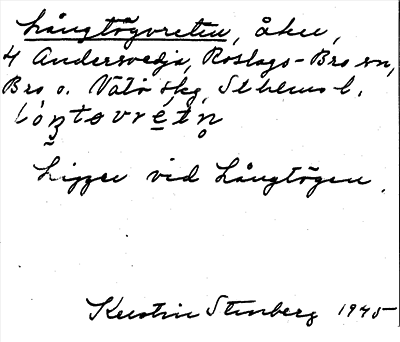 Långtögvreten, åker,
4 Andersvedja, Roslags-Bro sn,
Bro o. Vätö skg, Sthlms l.
lóŋtøvre̱tn̥
Ligger vid Långtögen.
Kerstin Stenberg 1945